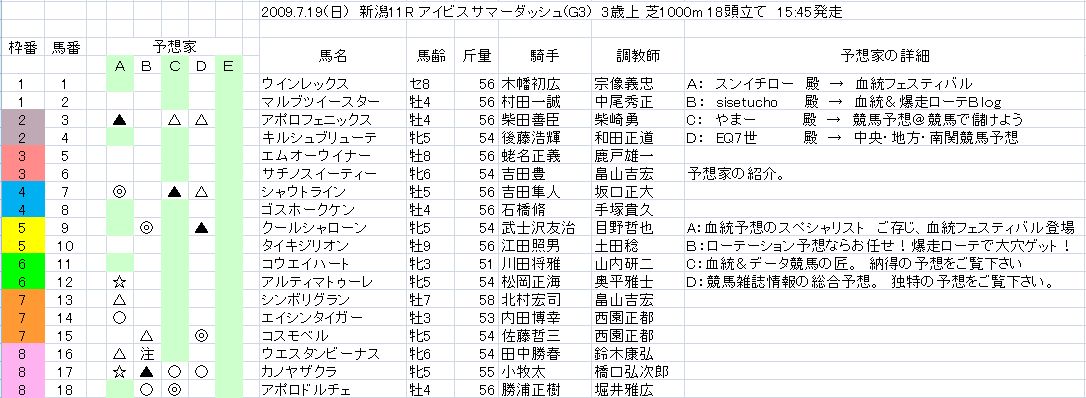 2009.7.19(日) 新潟11R アイビスサマーダッシュ(G3) 3歳上 芝1000m 18頭立て 15:45発走
枠番 馬番 予想家 馬名 馬齢 斤量 騎手 調教師 予想家の詳細
A B C D E
1 1 ウインレックス セ8 56 木幡初広 宗像義忠 A: スンイチロー 殿 → 血統フェスティバル
1 2 マルブツイースター 牡4 56 村田一誠 中尾秀正 B: sisetucho 殿 → 血統&爆走ローテBlog
2 3 ▲ △ △ アポロフェニックス 牡4 56 柴田善臣 柴崎勇 C: やまー 殿 → 競馬予想@競馬で儲けよう
2 4 キルシュブリューテ 牝5 54 後藤浩輝 和田正道 D: EQ7世 殿 → 中央・地方・南関競馬予想
3 5 エムオーウィナー 牡8 56 蛯名正義 鹿戸雄一
3 6 サチノスイーティー 牝6 54 吉田豊 畠山吉宏 予想家の紹介。
4 7 ◎ ▲ △ シャウトライン 牡5 56 吉田隼人 坂口正大
4 8 ゴスホークケン 牡4 56 石橋脩 手塚貴久
5 9 ◎ ▲ クールシャローン 牝5 54 武士沢友治 目野哲也 A:血統予想のスペシャリスト ご存じ、血統フェスティバル登場
5 10 タイキジリオン 牡9 56 江田照男 土田稔 B:ローテーション予想ならお任せ！爆走ローテで大穴ゲット！
6 11 コウエイハート 牝3 51 川田将雅 山内研二 C:血統&データ競馬の匠。 納得の予想をご覧下さい
6 12 ☆ アルティマトゥーレ 牝5 54 松岡正海 奥平雅士 D:競馬雑誌情報の総合予想。 独特の予想をご覧下さい。
7 13 △ シンボリグラン 牡7 58 北村宏司 畠山吉宏
7 14 ○ エイシンタイガー 牡3 53 内田博幸 西園正都
7 15 △ ◎ コスモベル 牝5 54 佐藤哲三 西園正都
8 16 △ 注 ウエスタンビーナス 牝6 54 田中勝春 鈴木康弘
8 17 ☆ ▲ ○ ○ カノヤザクラ 牝5 55 小牧太 橋口弘次郎
8 18 ○ ◎ アポロドルチェ 牡4 56 勝浦正樹 堀井雅広